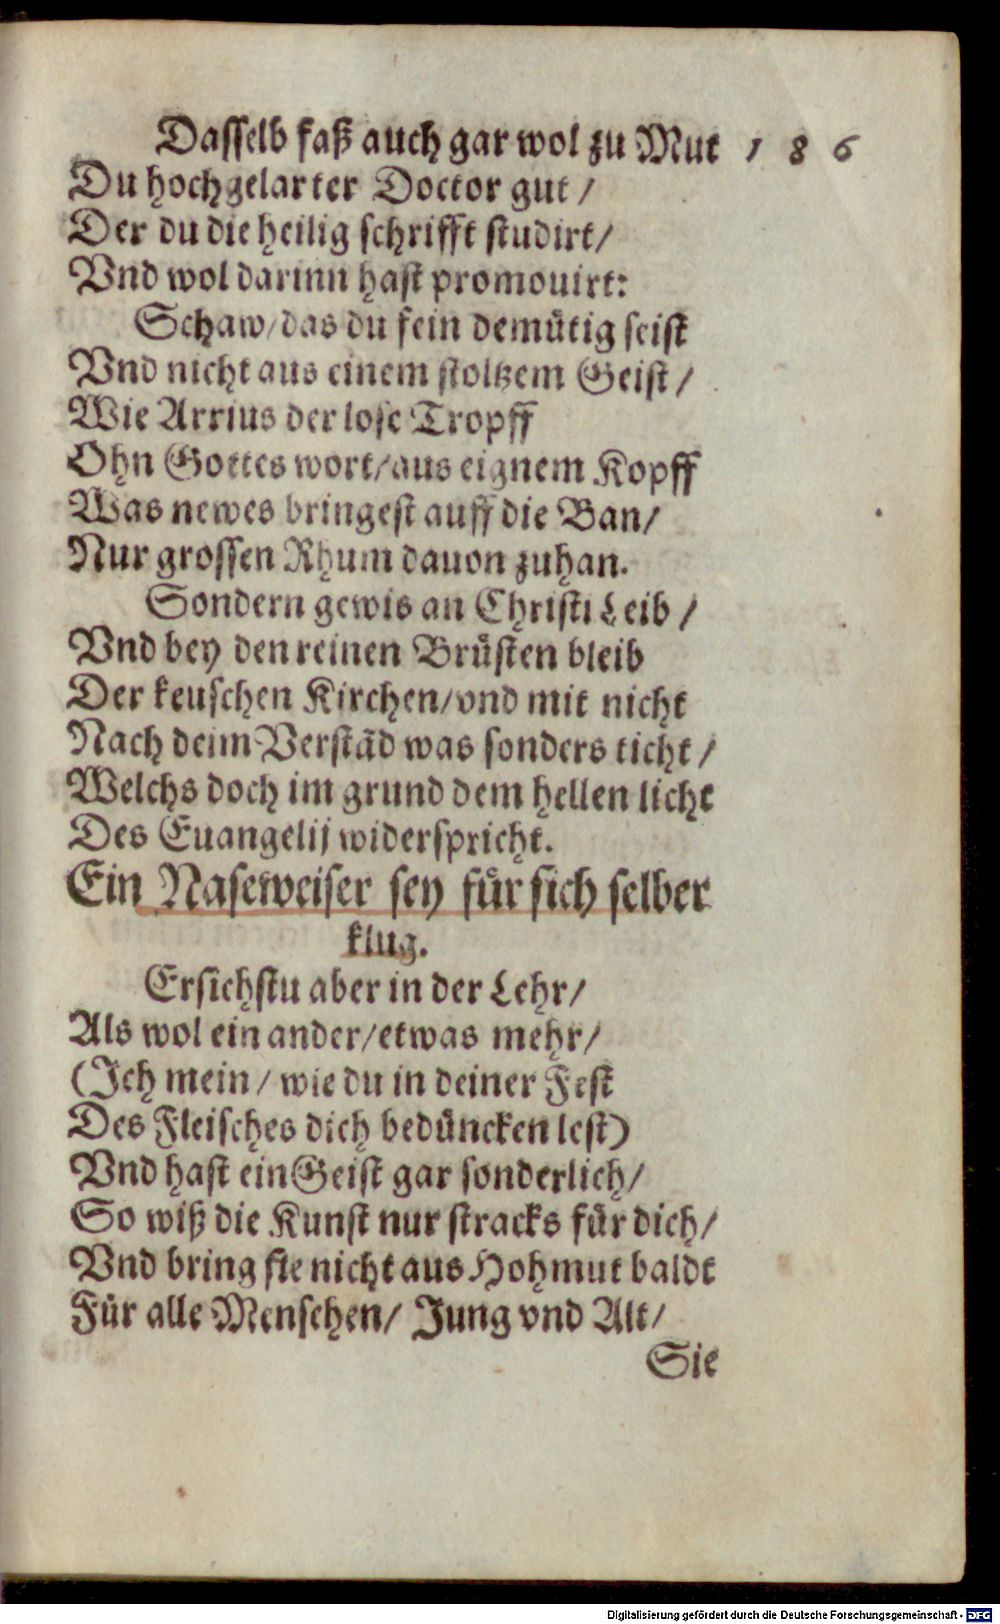 Dasselb faß auch gar wol zu Mut 1 8 6
Du hochgelarter Doctor gut /
Der du die heilig schrifft studirt/
Vnd wol darinn hast promouirt:
Schaw/das du fein demütig seist
Vnd nicht aus einem stoltzem Geist /
Wie Arrius der lose Tropff
Ohn Gottes wort/aus eignem Kopff
Was newes bringest auff die Ban/
Nur grossen Rhum dauon zuhan.
Sondern gewis an Christi Leib /
Vnd bey den reinen Brüsten bleib
Der keuschen Kirchen/vnd mit nicht
Nach deim Verstãd was sonders ticht /
Welchs doch im grund dem hellen licht
Des Euangelij widerspricht.
Ein Naseweiser sey für sich selber
klug.
Ersichstu aber in der Lehr/
Als wol ein ander/etwas mehr/
(Ich mein / wie du in deiner Fest
Des Fleisches dich bedüncken lest)
Vnd hast ein Geist gar sonderlich/
So wiß die Kunst nur stracks für dich/
Vnd bring sie nicht aus Hohmut baldt
Für alle Menschen/ Jung vnd Alt/
Sie
Digitalisierung gefördert durch die Deutsche Forschungsgemeinschaft - DFG